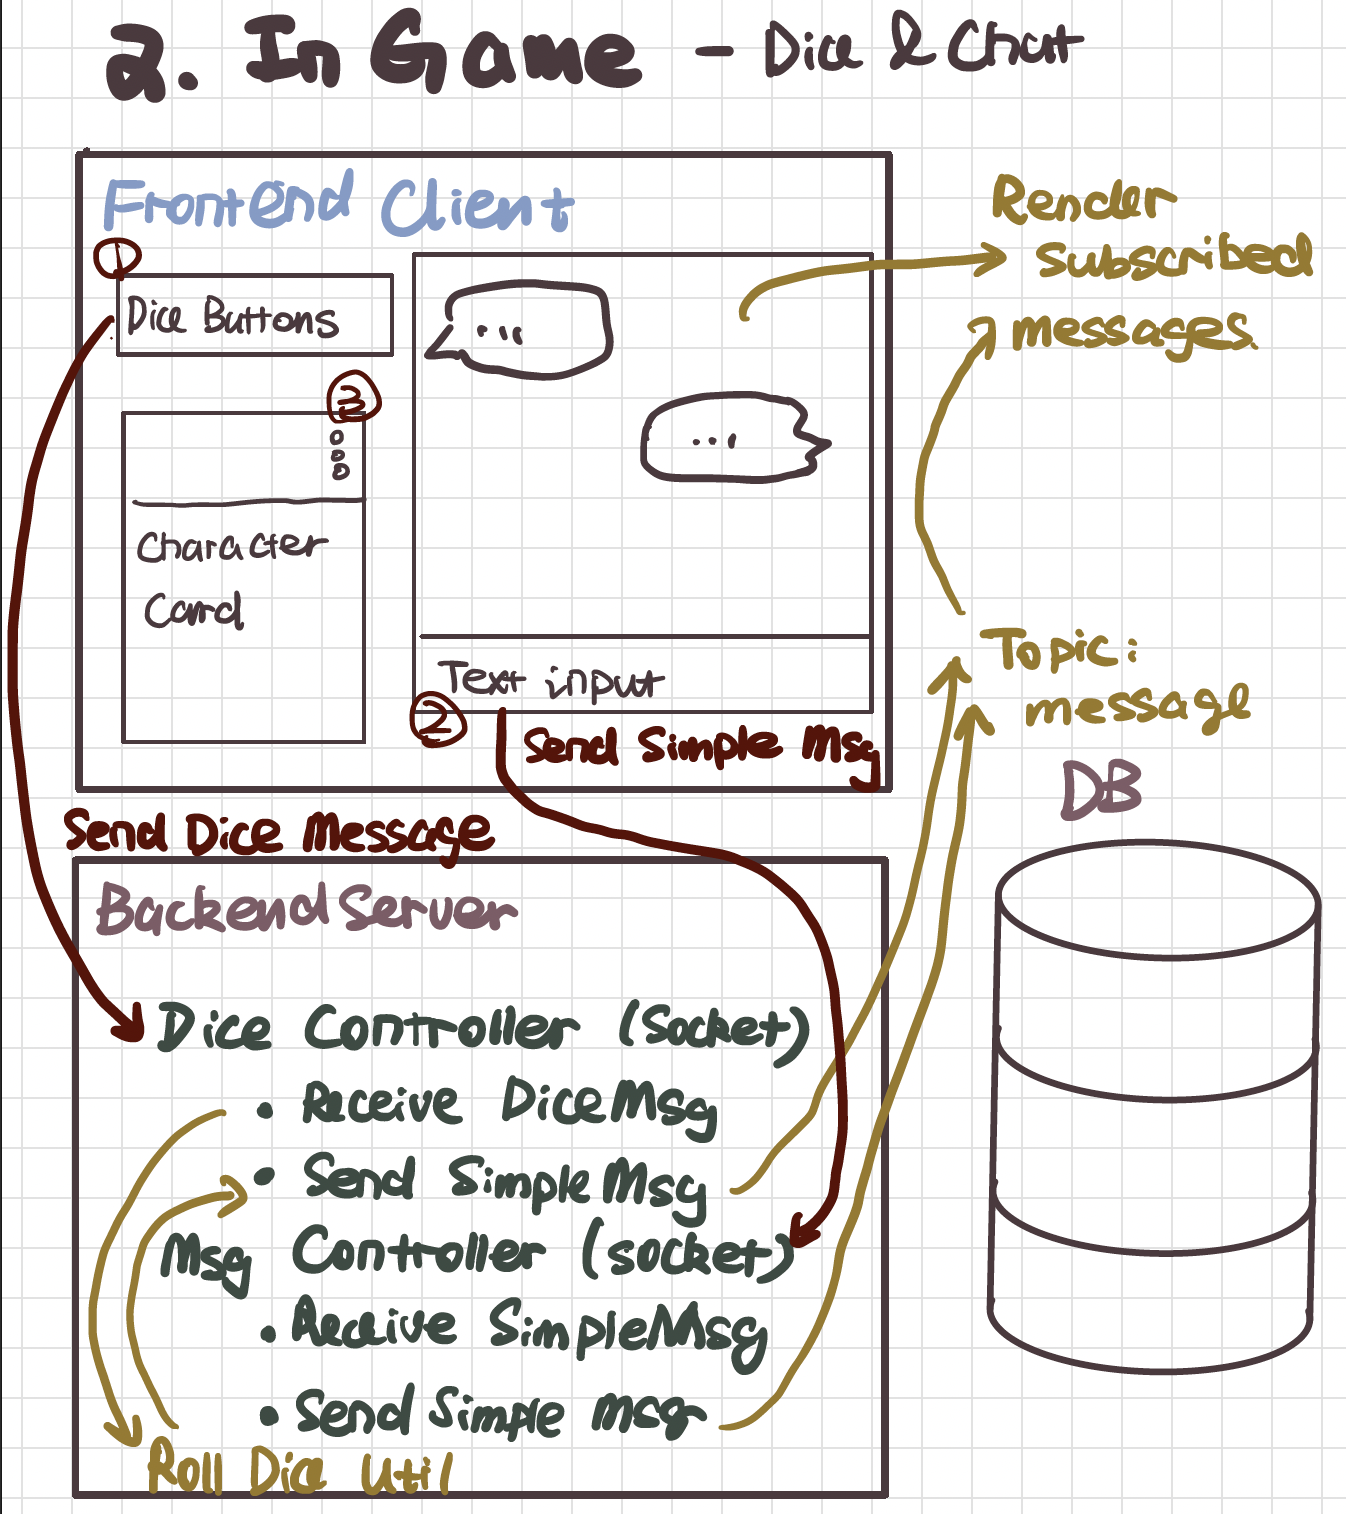 2. In Game - Dice & Chat
Frontend Client
1
Dice Buttons
3
Character
Card
...
...
Text input
2
Send Simple Msg
Render
subscribed
messages
Topic:
message
DB
Send Dice Message
Backend Server
Dice Controller (Socket)
• Receive DiceMsg
• Send SimpleMsg
Msg Controller (socket)
• Receive SimpleMsg
• Send Simple msg
Roll Dice Util